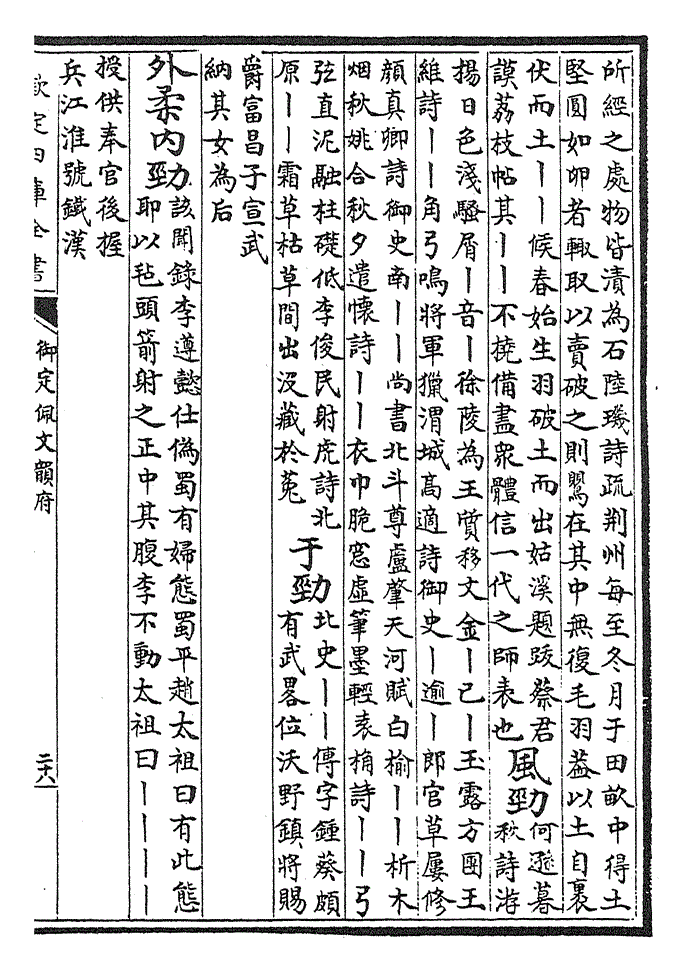 所經之處物皆漬為石陸璣詩疏荆州每至冬月于田畝中得土
堅圓如卵者輙取以賣破之則鷖在其中無復毛羽葢以土自裹
伏而土丨丨候春始生羽破土而出姑溪題跋蔡君
謨荔枝帖其丨丨不撓備盡衆體信一代之師表也
風勁
何遜暮
秋詩游
揚日色淺騷屑丨音丨徐陵為王質移文金丨已丨玉露方團王
維詩丨丨角弓鳴將軍獵渭城髙適詩御史丨逾丨郎官草屢修
顔真卿詩御史南丨丨尚書北斗尊盧肇天河賦白榆丨丨析木
烟秋姚合秋夕遣懐詩丨丨衣巾脆窓虛筆墨輕袁桷詩丨丨弓
弦直泥融柱礎低李俊民射虎詩北
原丨丨霜草枯草間出沒藏於菟
于勁
北史丨丨傳字鍾葵頗
有武畧位沃野鎮將賜
爵富昌子宣武
納其女為后
外柔内勁
該聞錄李遵懿仕偽蜀有婦態蜀平趙太祖曰有此態
耶以毡頭箭射之正中其腹李不動太祖曰丨丨丨丨
授供奉官後握
兵江淮號鐵漢
欽定四庫全書
御定佩文韻府
二十八